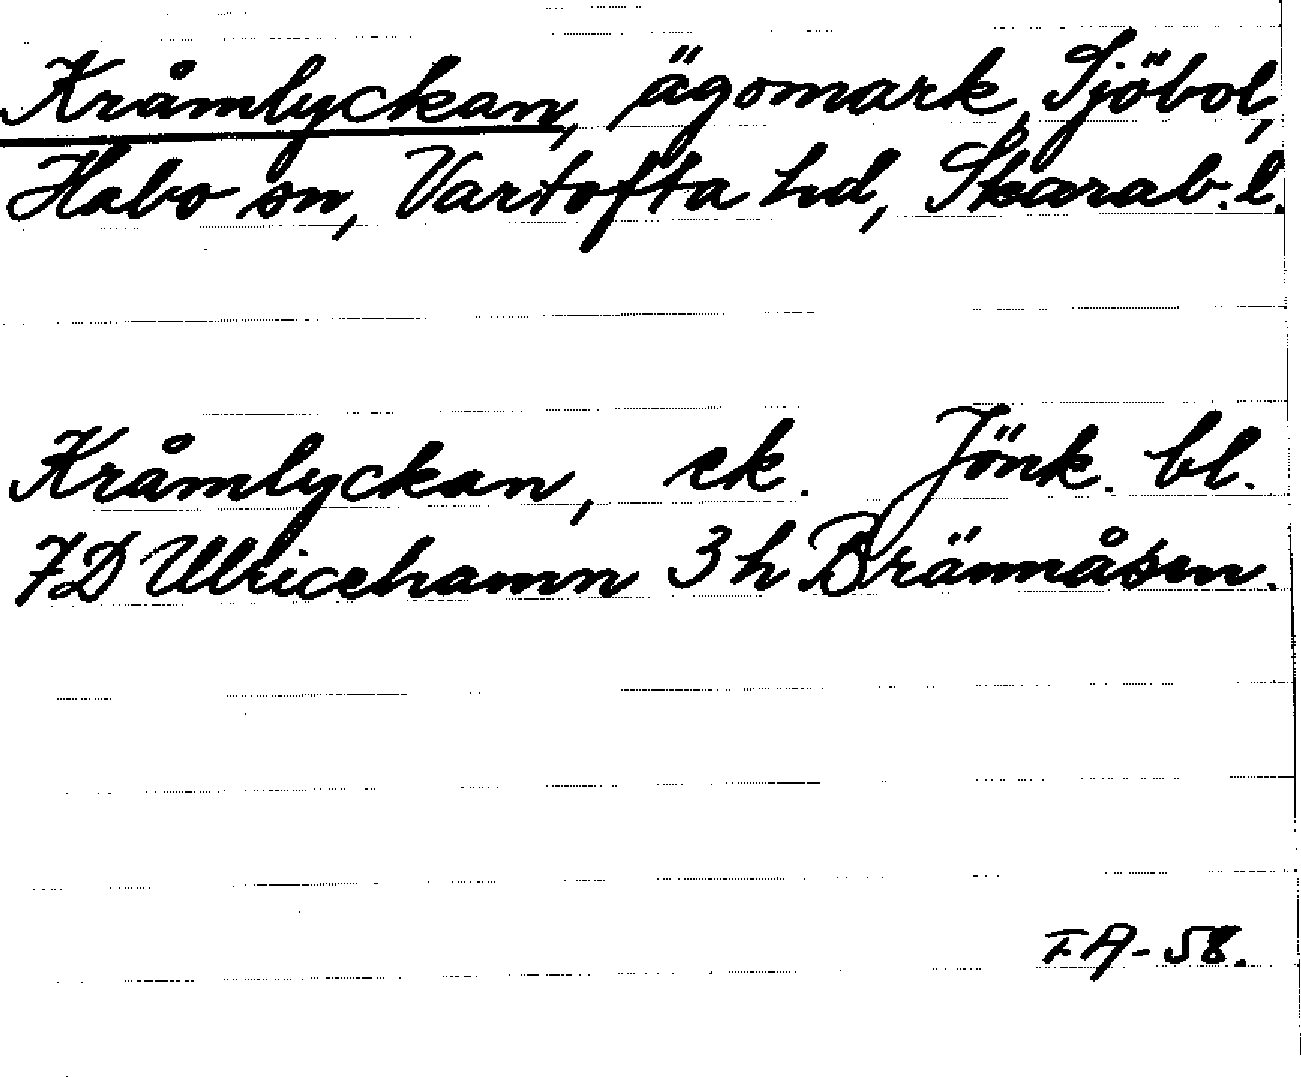 Kråmlyckan, ägomark, Sjöbol,
Habo sn, Vartofta hd, Skarab. l.
Kråmlyckan, ek. Jönk. bl.
7D Ulricehamn 3h Brännåsen.
FA-58.